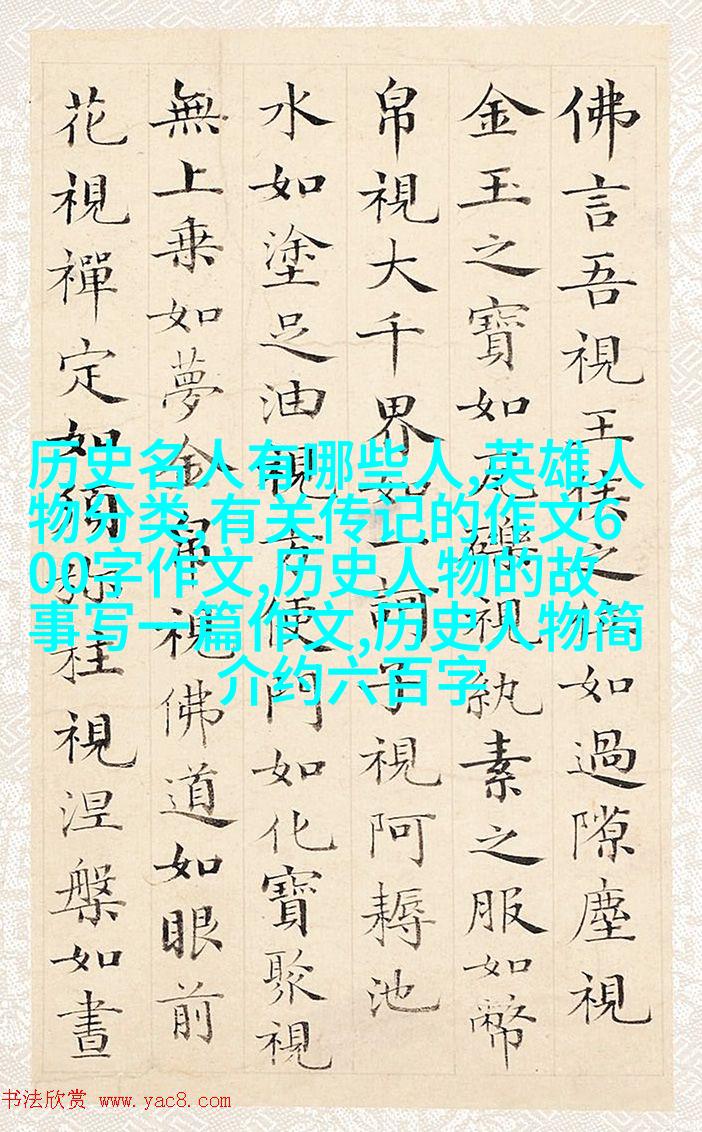 佛言吾視王侯之位如過隙塵視
金玉之寶如瓦礫視紈素之服如幣
帛視大千界如一訶子視阿耨池
水如塗足油視方便門如化寶聚視
無上乗如夢金帛視佛道如眼前
花視禪定如須弥柱視涅槃如晝
历史名人有哪些人,英雄人
物分类,有关传记的作文6
00字作文,历史人物的故
事写一篇作文,历史人物简
介约六百字
书法欣赏 www.yac8.com